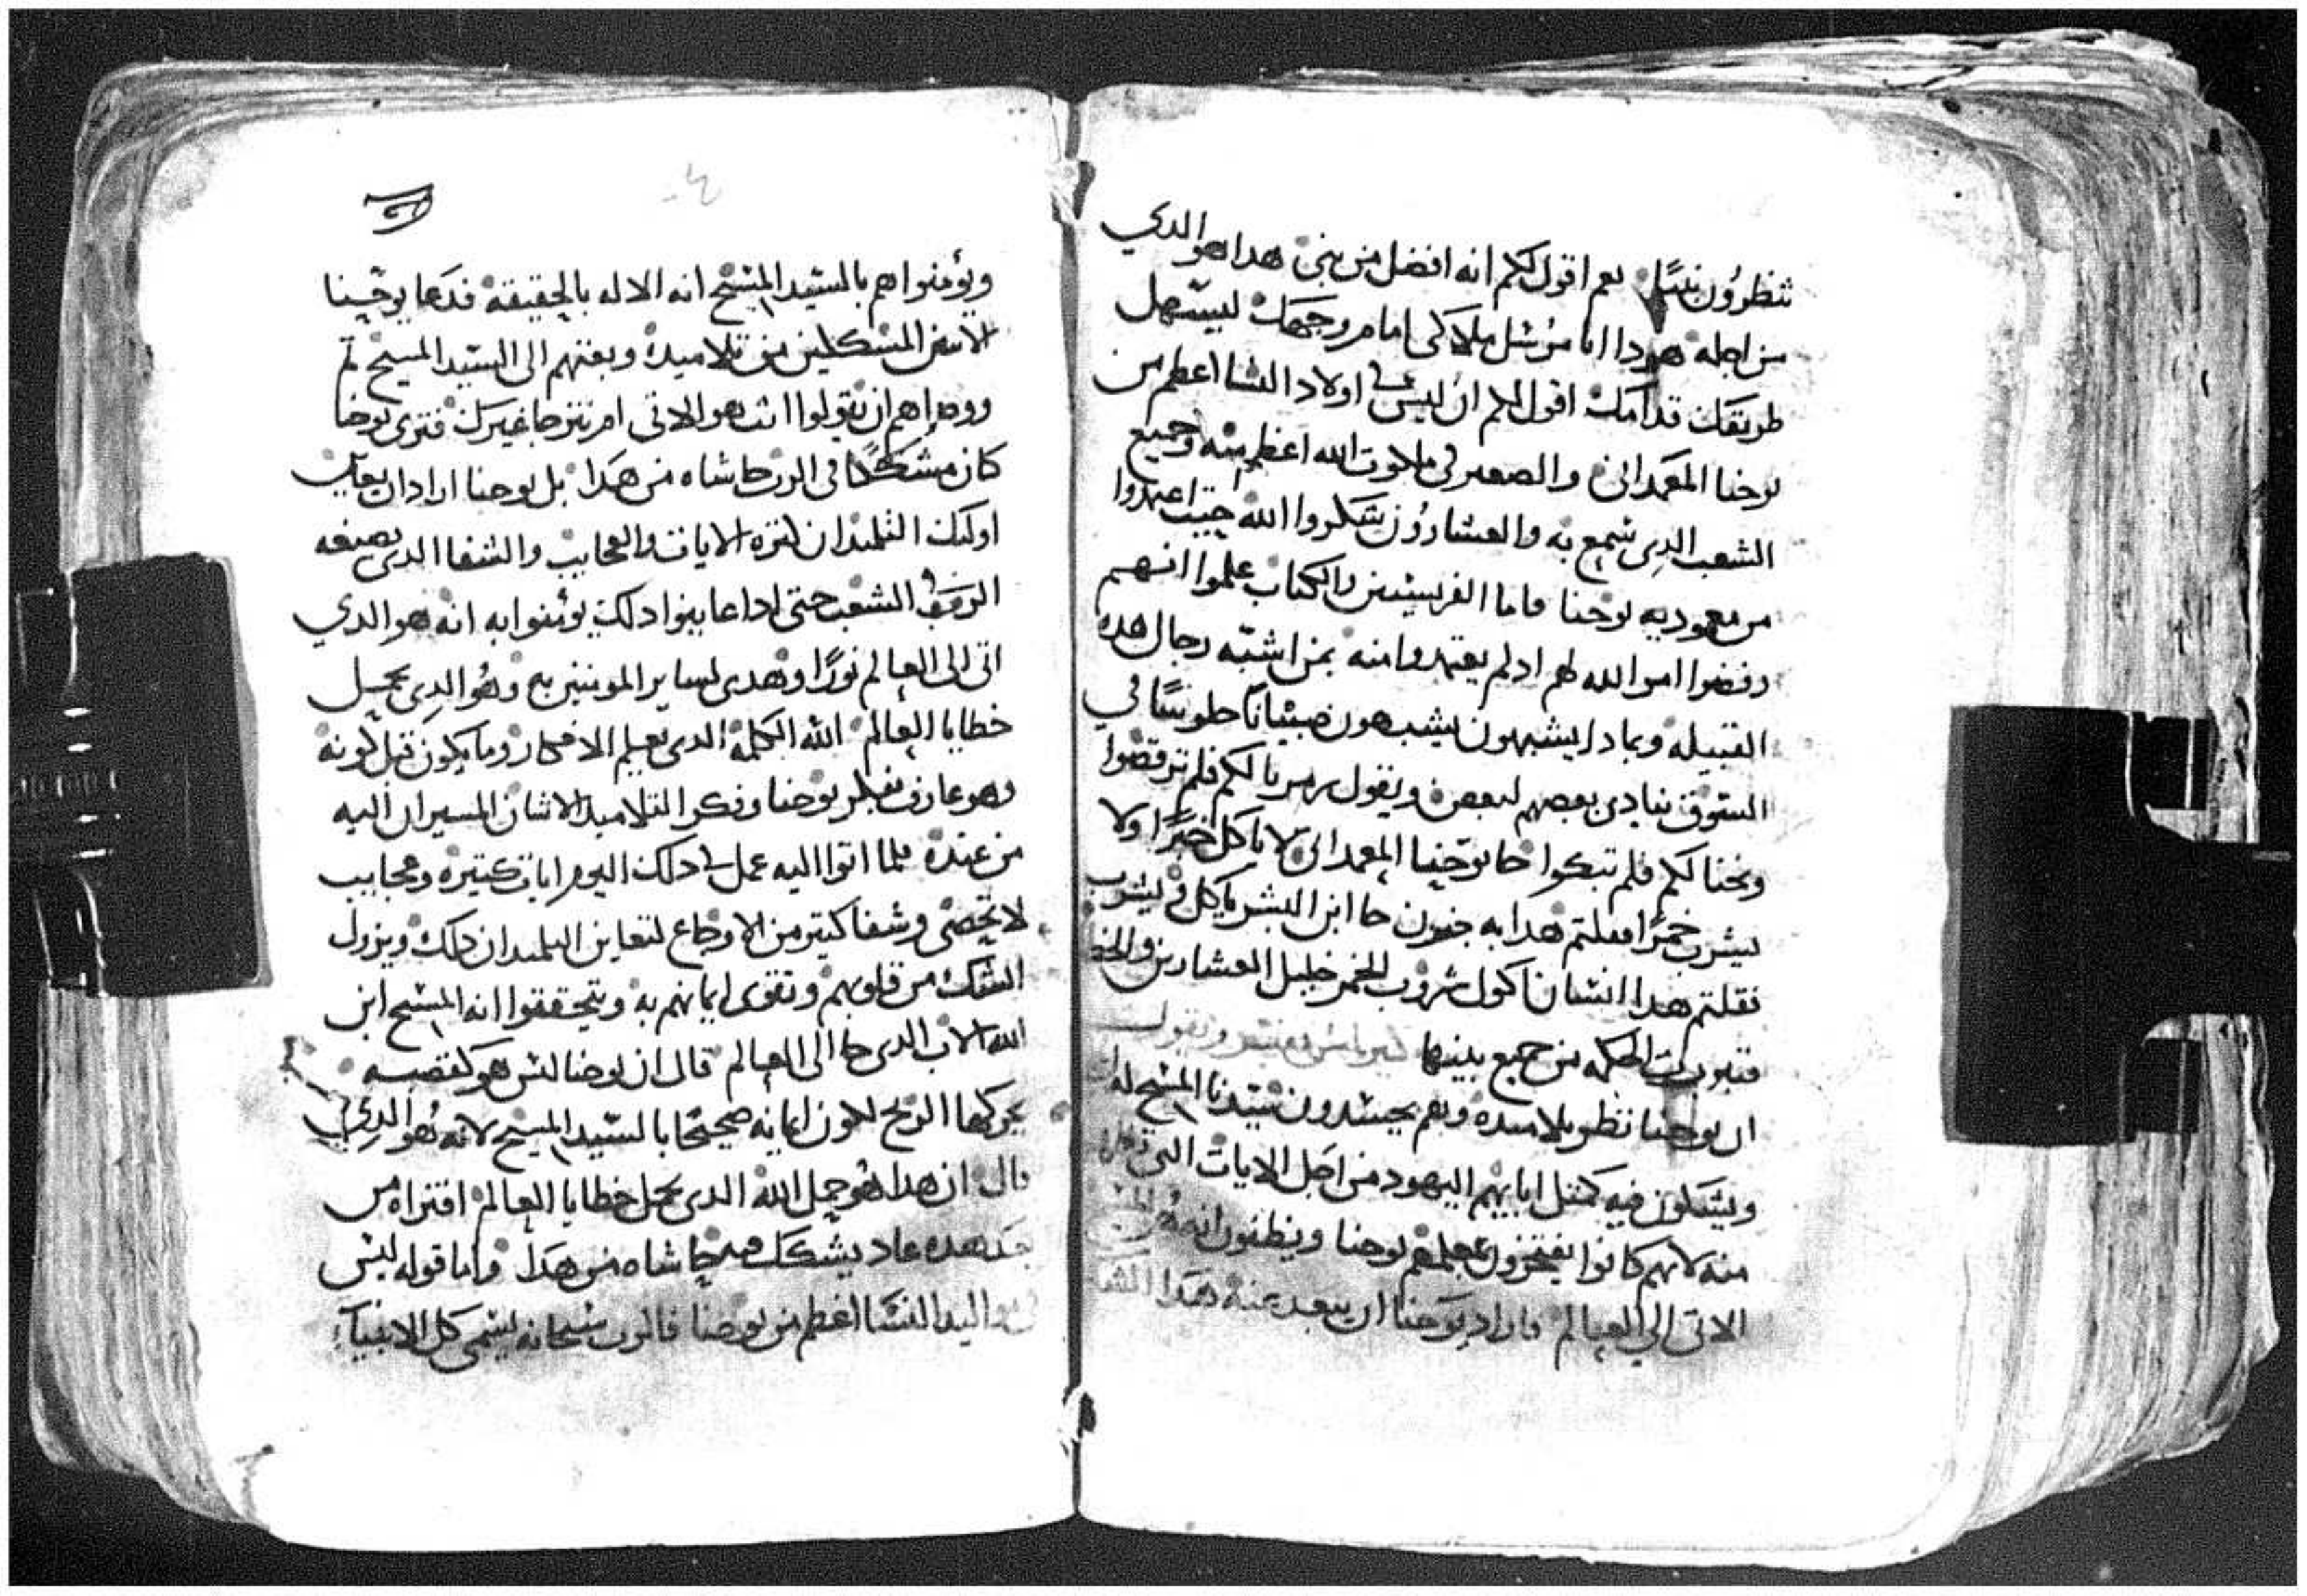 تنظرون نبيًا نعم اقول لكم انه افضل من نبي هدا هو الدي
من اجله هودا انا مرسل ملاكي امام وجهك ليسهل
طريقك قدامك اقول لكم ان ليس في اولاد النسا اعظم من
يوحنا المعمداني والصغير في ملكوت الله اعظم منه وجميع
الشعب الدي سمع به والعشارون شكروا الله حيث اعتمدوا
من معموديه يوحنا فاما الفريسيين والكتاب علموا انهم
رفضوا امر الله لهم ادلم يعتمدوا منه بمن اشبه رجال هده
القبيله وبمادا يشبهون يشبهون صبيانًا جلوسًا في
السوق ينادي بعضهم لبعض ويقول زمرنا لكم فلم ترقصوا
ونحنا لكم فلم تبكوا جا يوحنا المعمداني لا ياكل خبزًا ولا
يشرب خمرًا فقلتم هدا به جنون جا ابن البشر ياكل ويشرب
فقلتم هدا انسان اكول شروب للخمر خليل العشارين والخطا
فتبررت الحكمه من جميع بنيها وتقول
ان يوحنا نظر تلاميده وهم يحسدون سيدنا المسيح له المجد
ويشكون فيه كمثل ابايهم اليهود من اجل الايات التي
منه لانهم كانوا يفتخرون بمعلمهم يوحنا ويظنون انه هو
الاتي الي العالم فاراد يوحنا ان يبعد عنه هدا الشك
ويؤمنوا هم بالسيد المسيح انه الاله بالحقيقة فدعا يوحنا
الاتنين المشككين من تلاميده وبعتهم الى السيد المسيح
ووصاهم ان يقولوا انت هو الاتي ام نترجا غيرك فترى يوحنا
كان مشككًا في الرب حاشاه من هدا بل يوحنا اراد ان يعاين
اوليك التلميدان كترة الايات والعجايب والشفا الدي يصنعه
الرب في الشعب حتى ادا عاينوا دلك يؤمنوا به انه هو الدي
اتى الى العالم نورًا وهدى لساير المومنين به وهو الدي يحمل
خطايا العالم الله الكلمة الدي يعلم الافكار وما يكون قبل كونه
وهو عارف بفكر يوحنا وفكر التلاميد الاتنان المسيران اليه
من عنده فلما اتوا اليه عمل في دلك اليوم ايات كتيرة وعجايب
لا تحصى وشفا كتير من الاوجاع لتعاين التلميدان دلك ويزول
الشك من قلوبهم وتقوى ايمانهم به ويتحققوا انه المسيح ابن
الله الاب الدي جا الى العالم قال ان يوحنا ليس هو كقصبه
يحركها الريح لكون ايمانه صحيحًا بالسيد المسيح لانه هو الدي
قال ان هدا هو حمل الله الدي يحمل خطايا العالم افتراه من
بعد هده عاد يشكك حاشاه من هدا واما قوله ليس
في مواليد النسا اعظم من يوحنا فالرب سبحانه يسمى كل الانبيآء